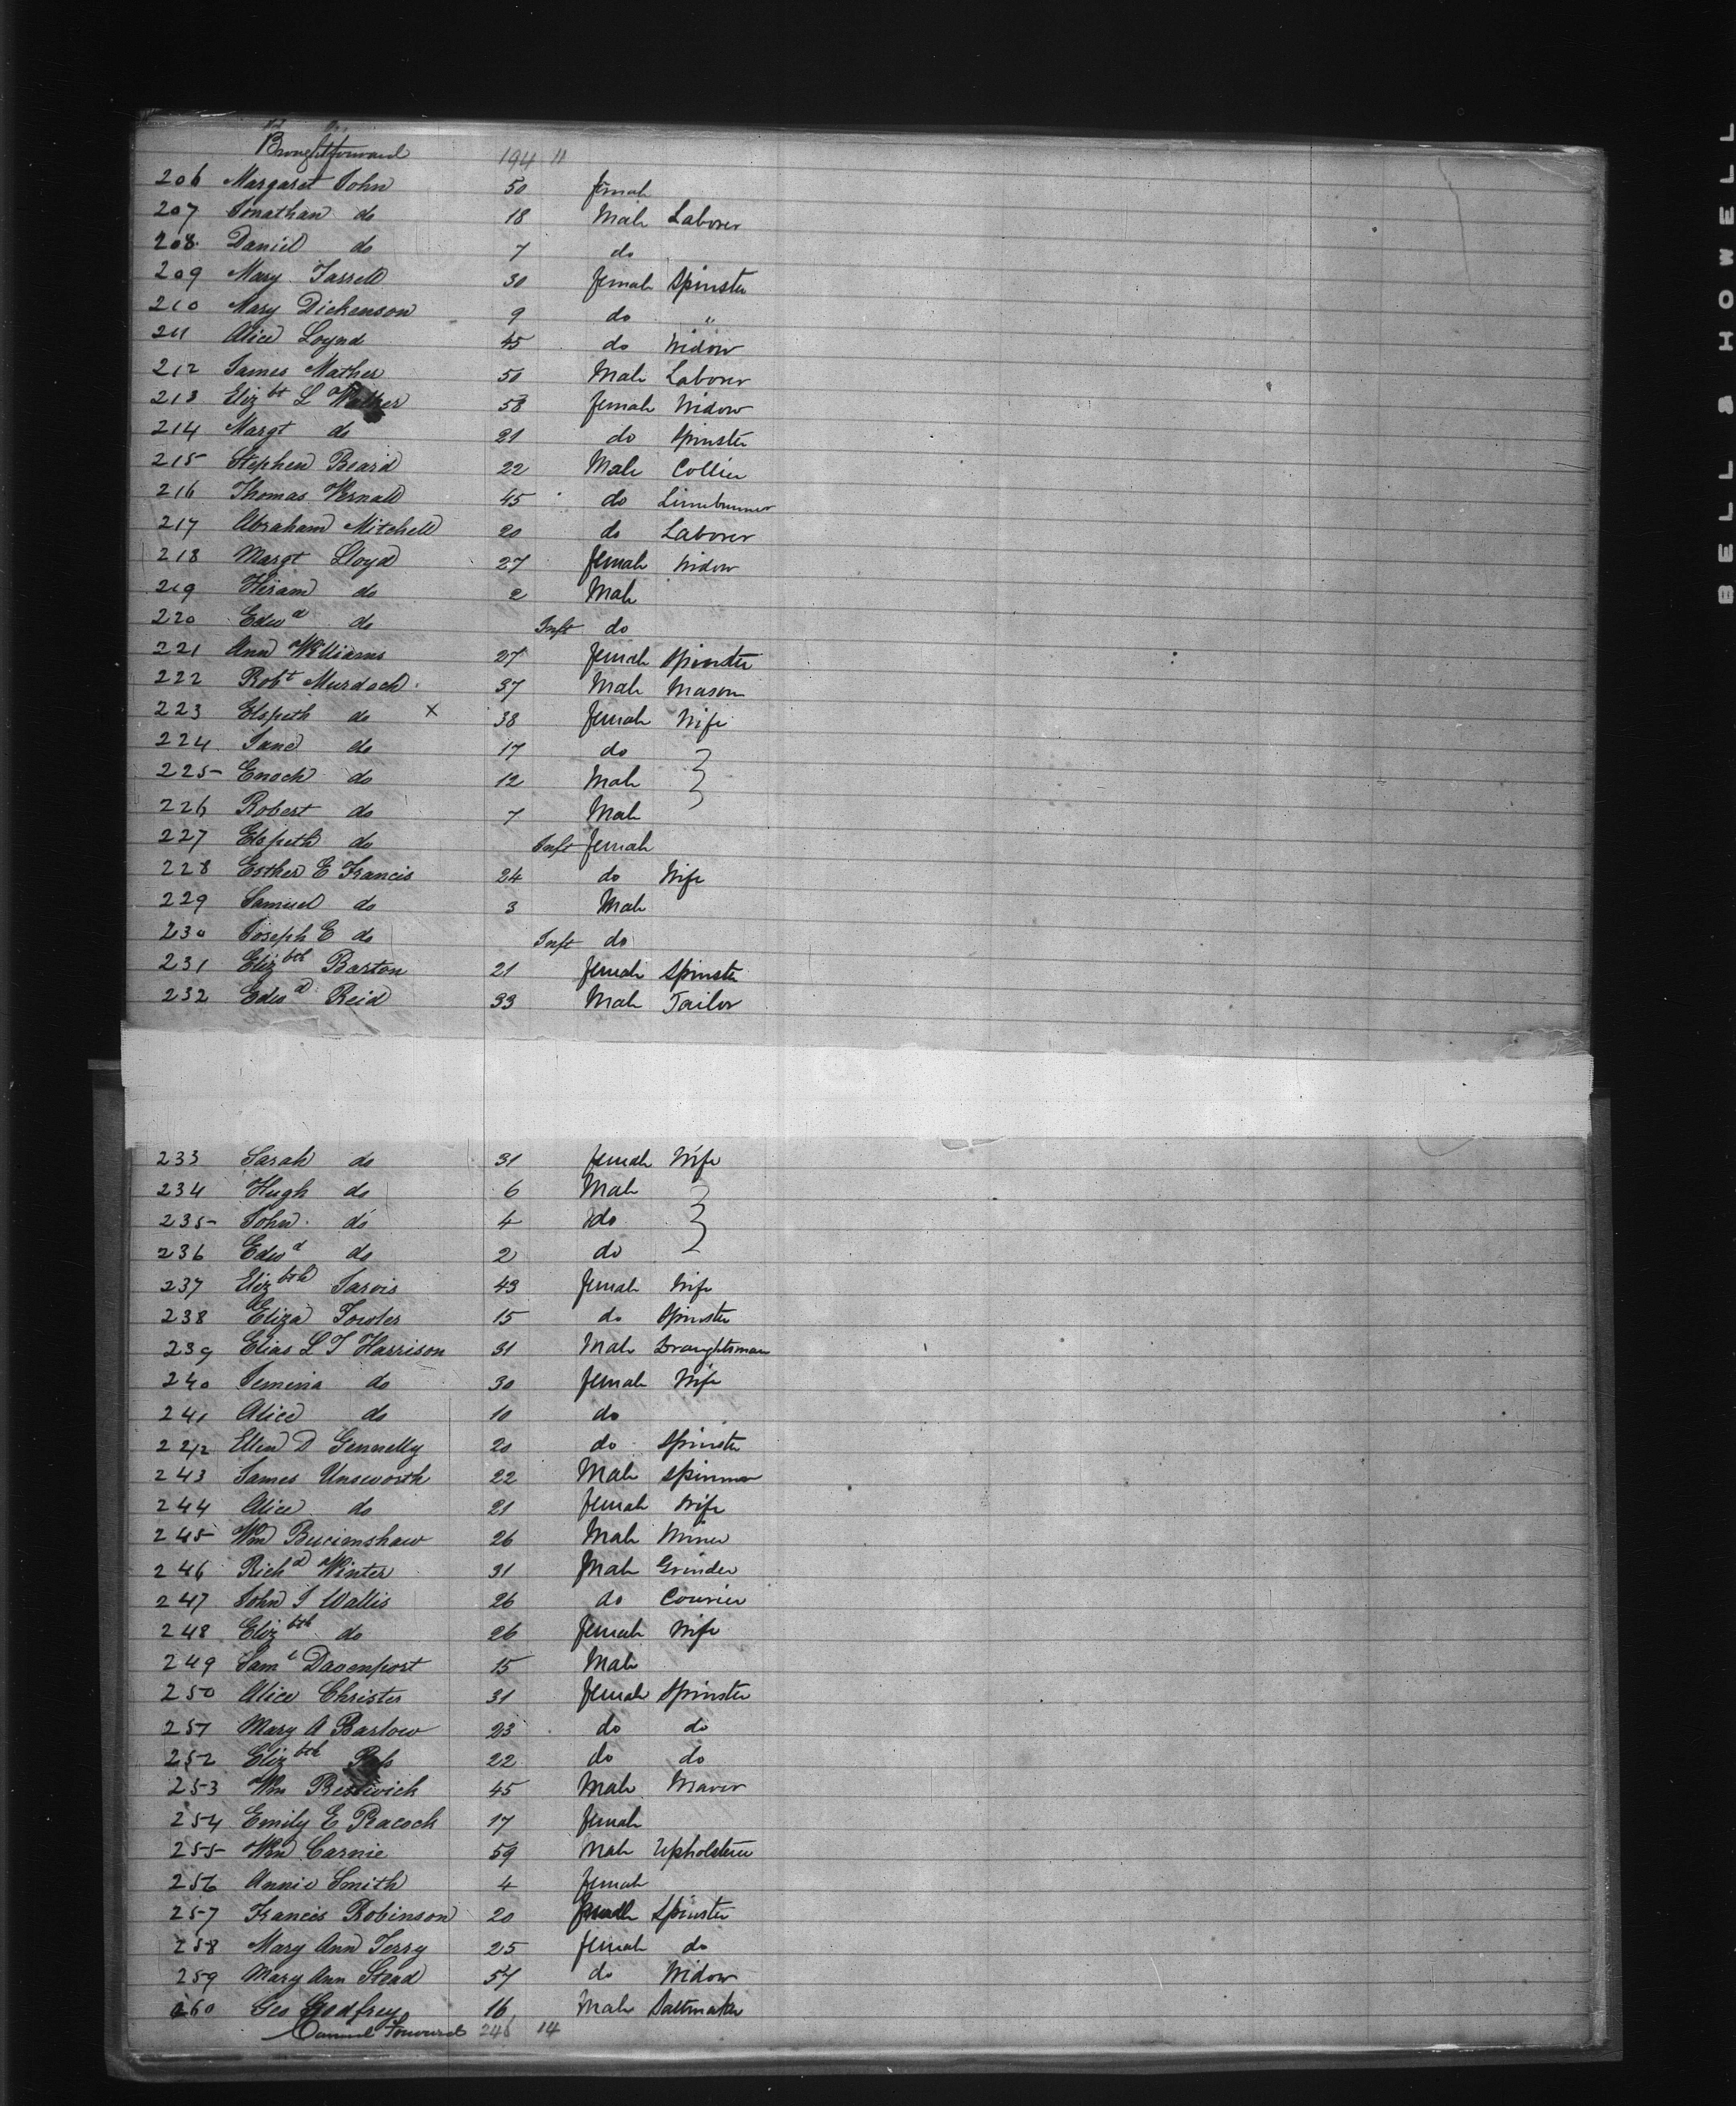 Brought forward 194 11
206 Margaret John 50 female
207 Jonathan do 18 Male Laborer
208 Daniel do 7 do
209 Mary Farrell 30 female Spinster
210 Mary Dickenson 9 do "
211 Alice Loynd 45 do Widow
212 James Mather 50 Male Laborer
213 Elizbt L Walker 58 female Widow
214 Margt do 21 do Spinster
215 Stephen Beard 22 Male Collier
216 Thomas Vernall 45 do Limeburner
217 Abraham Mitchell 20 do Laborer
218 Margt Lloyd 27 female Widow
219 Hiram do 2 Male
220 Edwd do Inft do
221 Ann Williams 27 female Spinster
222 Robt Murdoch 37 Male Mason
223 Elspeth do X 38 female Wife
224 Jane do 17 do
225 Enoch do 12 Male
226 Robert do 7 Male
227 Elspeth do Inft female
228 Esther E Francis 24 do Wife
229 Samuel do 3 Male
230 Joseph E do Inft do
231 Elizbth Barton 21 female Spinster
232 Edwd Reid 33 Male Tailor
233 Sarah do 31 female Wife
234 Hugh do 6 Male
235 John do 4 do
236 Edwd do 2 do
237 Elizbth Jarvis 43 female Wife
238 Eliza Fowler 15 do Spinster
239 Elias L T Harrison 31 Male Draughtsman
240 Jemima do 30 female Wife
241 Alice do 10 do
242 Ellen D Gennelly 20 do Spinster
243 James Unsworth 22 Male Spinner
244 Alice do 21 female Wife
245 Wm Bucienshaw 26 Male Miner
246 Richd Winter 31 Male Grinder
247 John J Wallis 26 do Courier
248 Elizbth do 26 female Wife
249 Saml Davenport 15 Male
250 Alice Christer 31 female Spinster
251 Mary A Barlow 23 do do
252 Elizbth 22 do do
253 Wm Restwich 45 Male
254 Emily E Peacock 17 female
255 Wm Carnie 59 Male Upholsterer
256 Annie Smith 4 female
257 Francis Robinson 20 female Spinster
258 Mary Ann Terry 25 female do
259 Mary Ann Stead 57 do Widow
260 Geo Godfrey 16 Male Saltmaker
Carried Forward 246 14
BELL & HOWELL